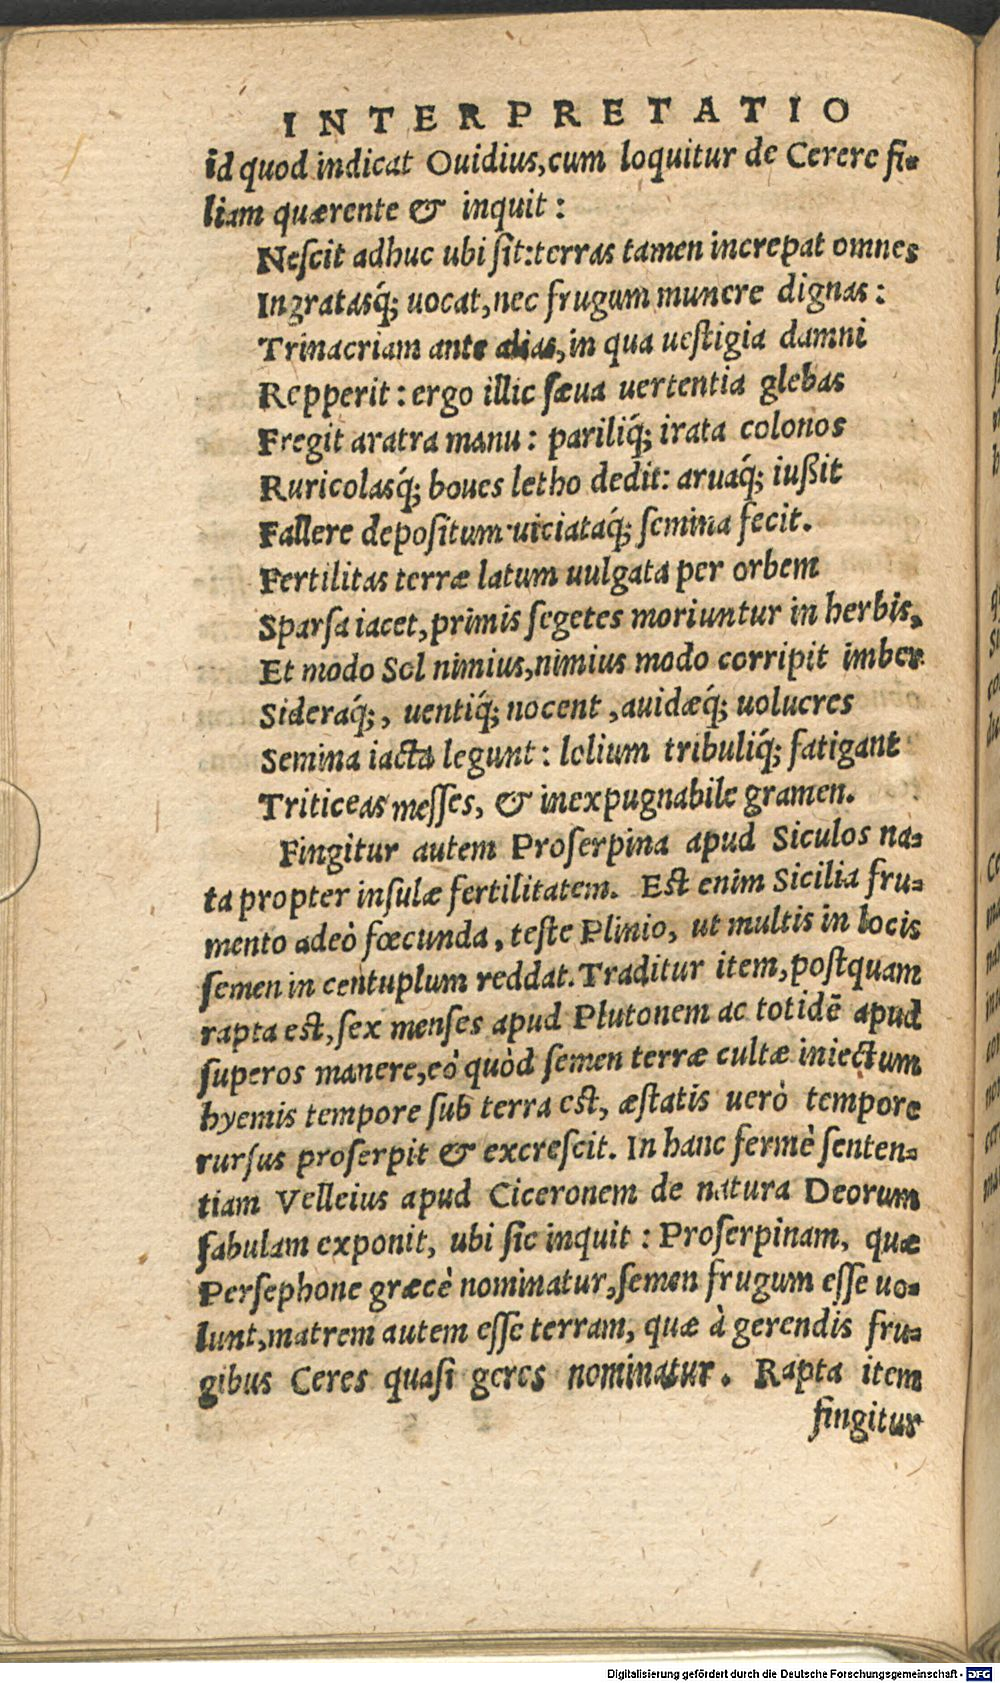 INTERPRETATIO
id quod indicat Ouidius, cum loquitur de Cerere fi-
liam quærente & inquit:
Nescit adhuc ubi sit: terras tamen increpat omnes
Ingratasq́; uocat, nec frugum munere dignas:
Trinacriam ante alias, in qua uestigia damni
Repperit: ergo illic sæua uertentia glebas
Fregit aratra manu: pariliq́; irata colonos
Ruricolasq́; boues letho dedit: aruaq́; iußit
Fallere depositum uiciataq́; semina fecit.
Fertilitas terræ latum uulgata per orbem
Sparsa iacet, primis segetes moriuntur in herbis,
Et modo Sol nimius, nimius modo corripit imber
Sideraq́;, uentiq́; nocent, auidæq́; uolucres
Semina iacta legunt: lolium tribuliq́; fatigant
Triticeas messes, & inexpugnabile gramen.
Fingitur autem Proserpina apud Siculos na-
ta propter insulæ fertilitatem. Est enim Sicilia fru-
mento adeò fœcunda, teste Plinio, ut multis in locis
semen in centuplum reddat. Traditur item, postquam
rapta est, sex menses apud Plutonem ac totidē apud
superos manere, eò quòd semen terræ cultæ iniectum
hyemis tempore sub terra est, æstatis uerò tempore
rursus proserpit & excrescit. In hanc fermè senten-
tiam Velleius apud Ciceronem de natura Deorum
fabulam exponit, ubi sic inquit: Proserpinam, quæ
Persephone græcè nominatur, semen frugum esse uo-
lunt, matrem autem esse terram, quæ à gerendis fru-
gibus Ceres quasi geres nominatur. Rapta item
fingitur
Digitalisierung gefördert durch die Deutsche Forschungsgemeinschaft - DFG